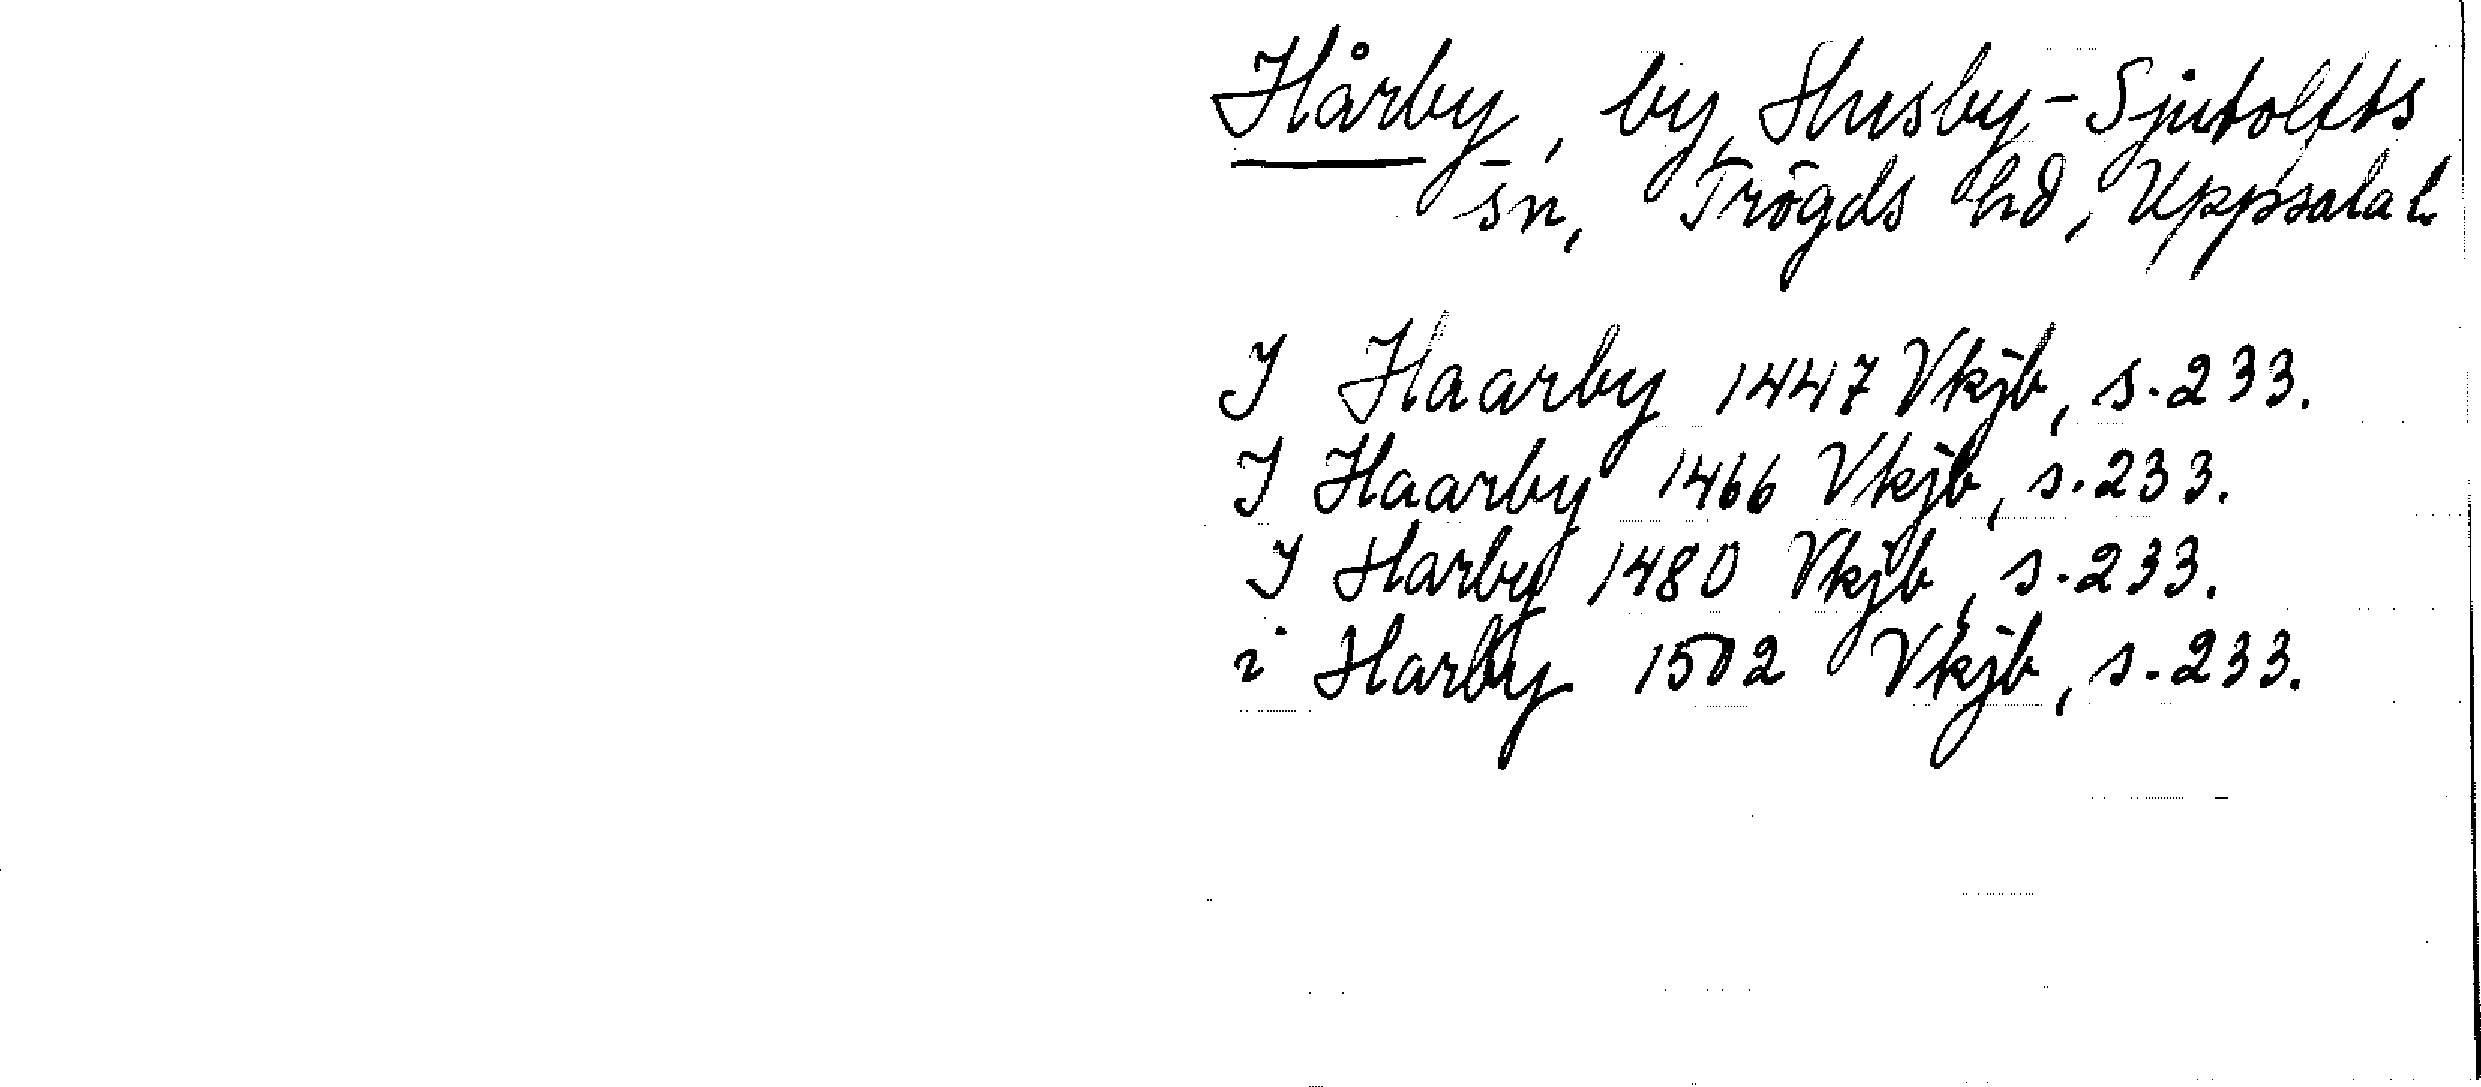 Hårby, by, Husby-Sjutolfts
sn, Trögds hd, Uppsala l.
I Haarby 1447 Vkjb, s. 233.
I Haarby 1466 Vkjb, s. 233.
I Harby 1480 Vkjb, s. 233.
i Harby 1502 Vkjb, s. 233.